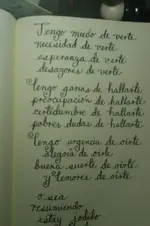 Tengo miedo de verte
necesidad de verte
esperanza de verte
desazones de verte
tengo ganas de hallarte
preocupación de hallarte
certidumbre de hallarte
pobres dudas de hallarte
tengo urgencia de oírte
alegría de oírte
buena suerte de oírte
y temores de oírte
o sea
resumiendo
estoy jodido